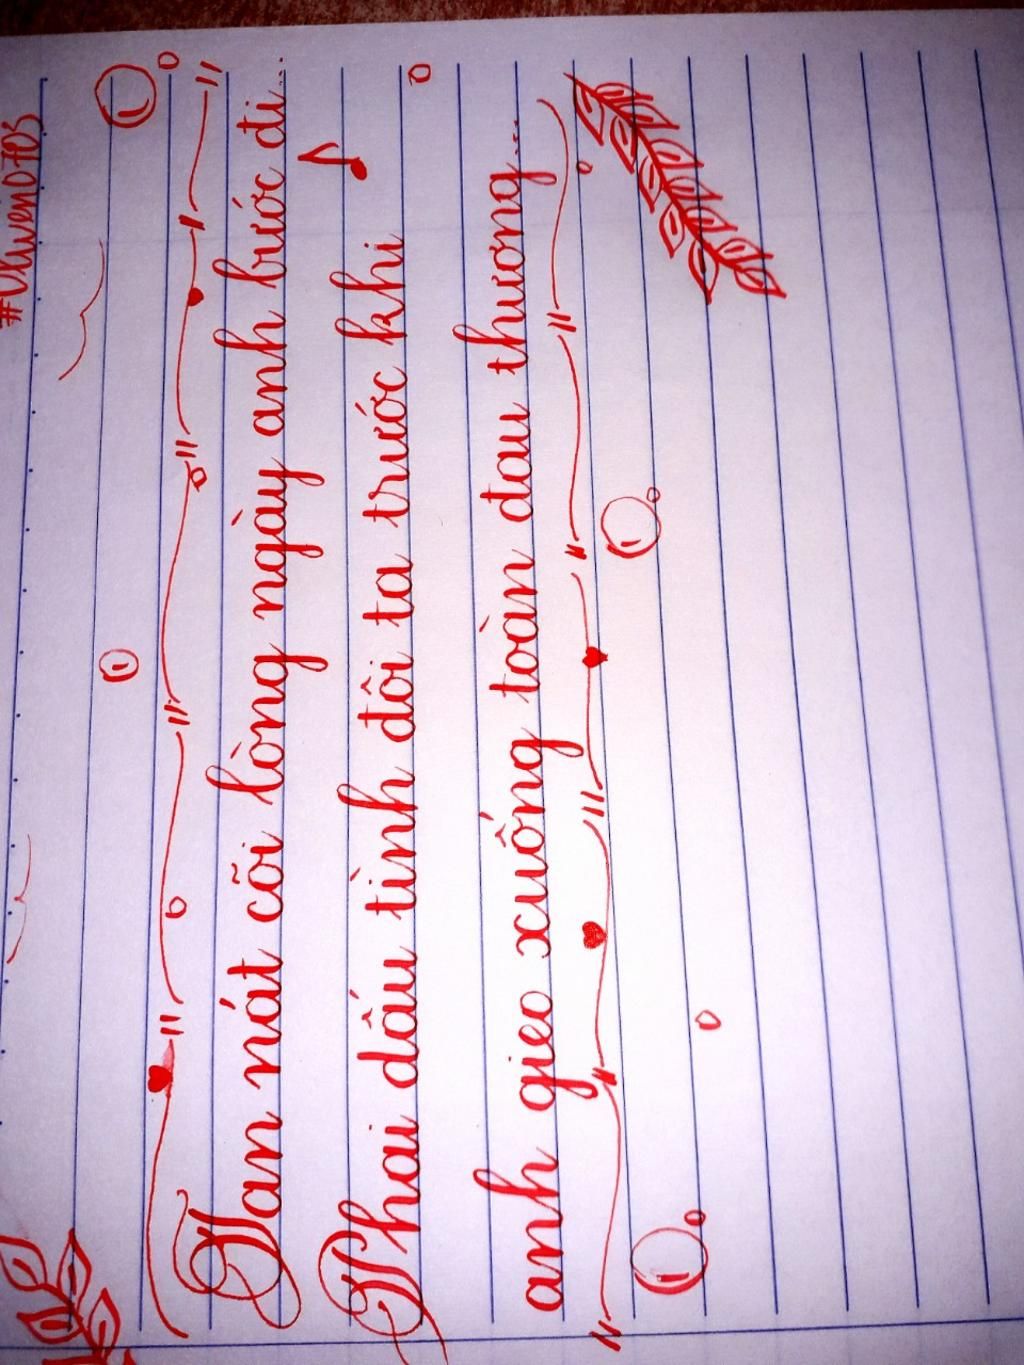 Tan nát cõi lòng ngày anh bước đi...
Phai dấu tình đôi ta trước khi
anh gieo xuống toàn đau thương...